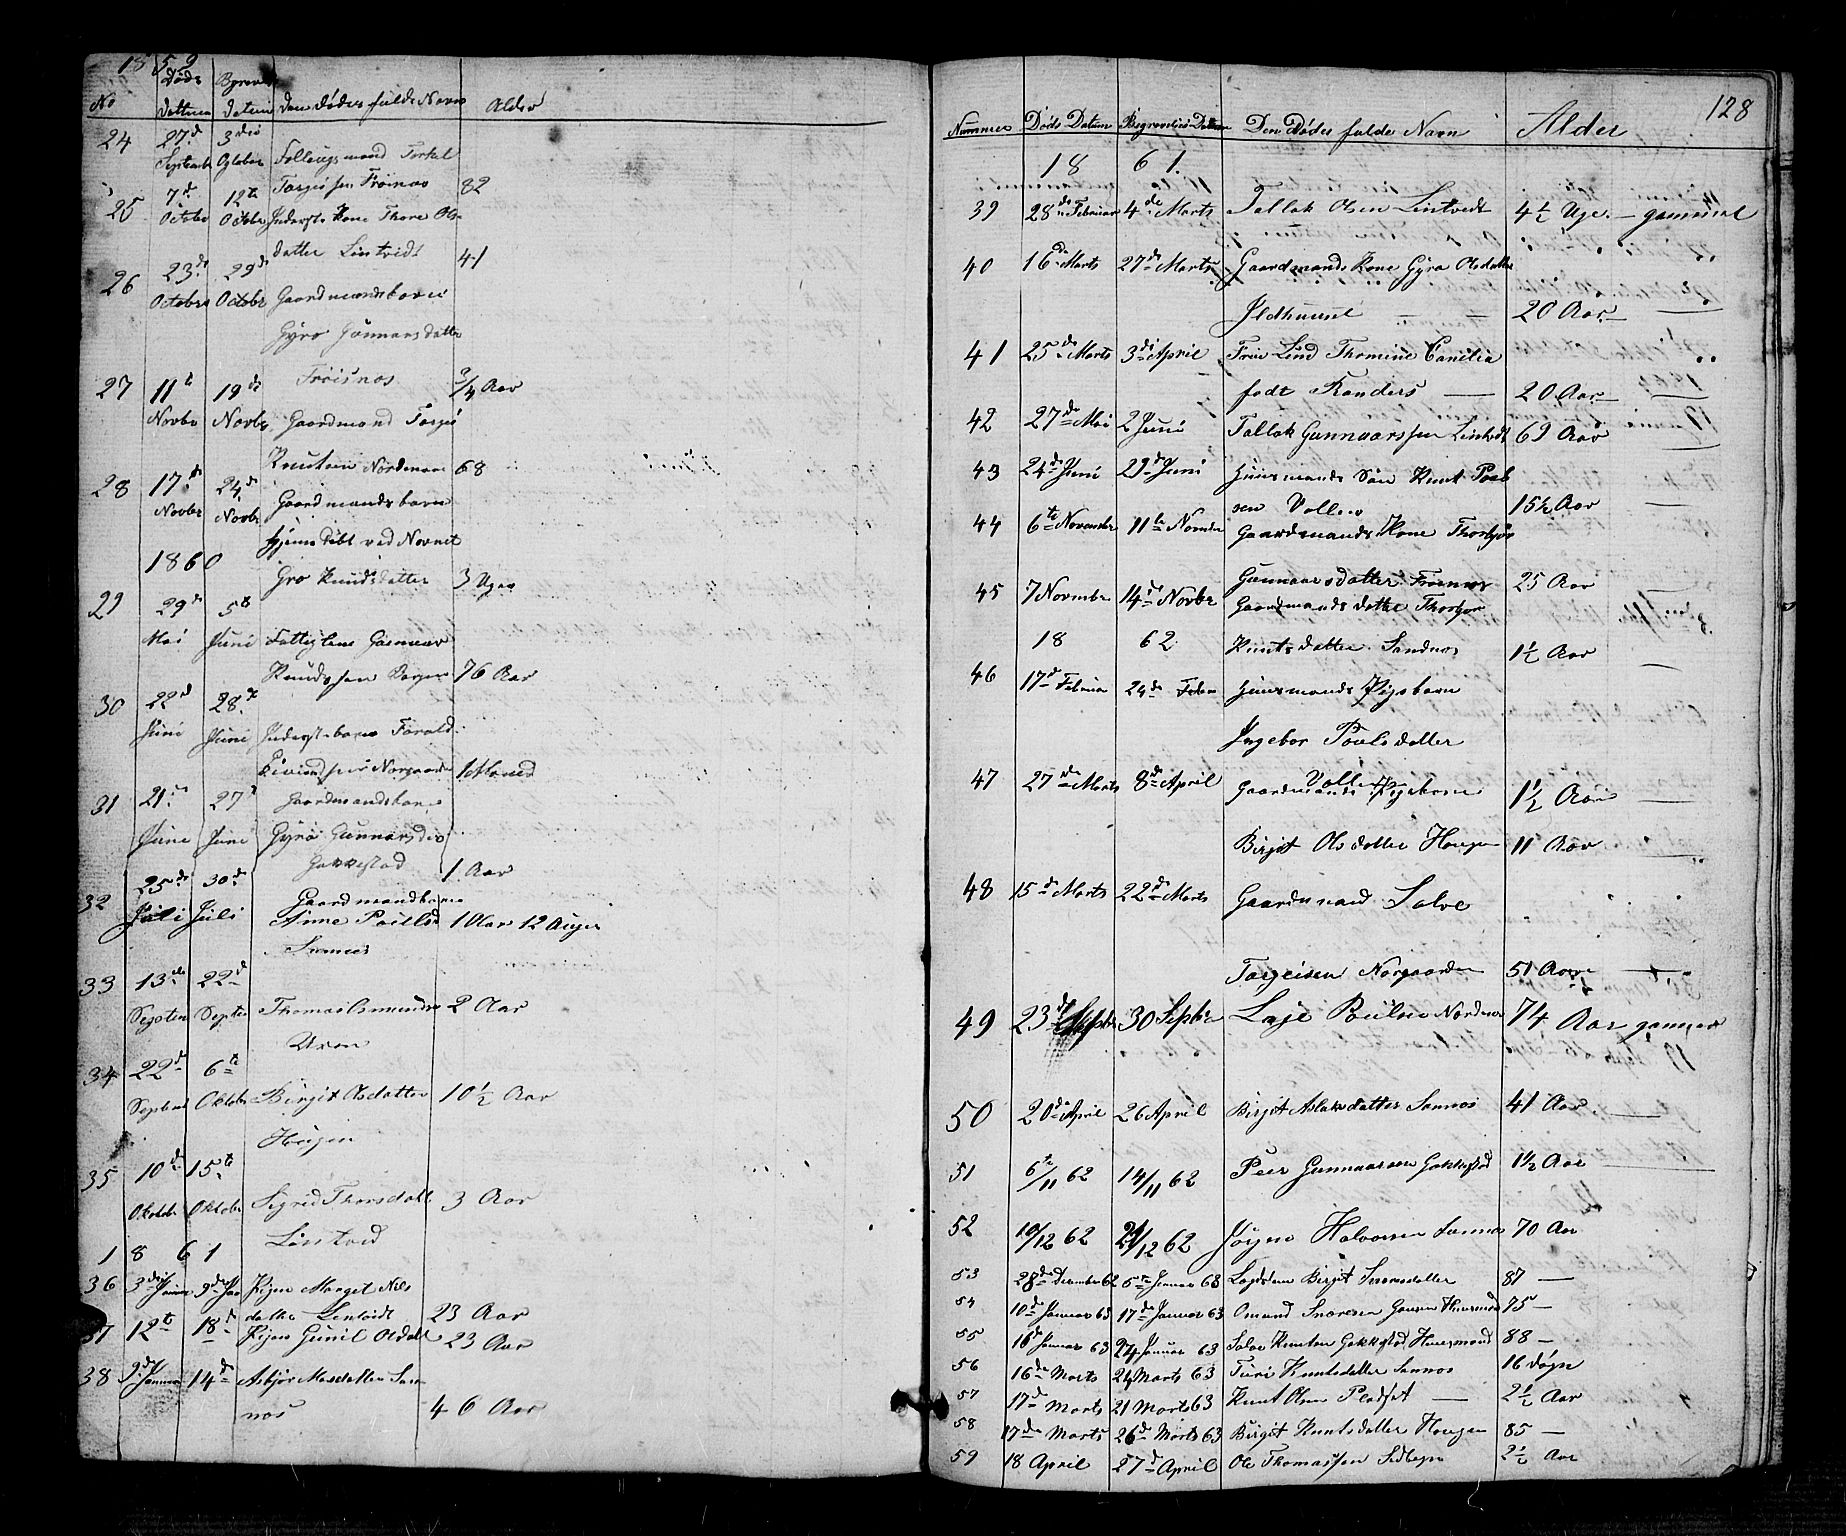 1859
No Døds Dattum Begrav Datum den dødes fulde Navn Alder
24 27d Septembr 3die Octobr Follougsmand Torkel
Torgussen Froisnæs 82
25 7d Octobr 12te Octobr Inderst Kone Thore Ols
datter Lintvidt 41
26 23d October 29d Octobr Gaardmandsbarn
Gyro Gunnarsdatter
Froisnes 3/4 Aar
27 11t Novbr 19de Novbr Gaardmand Torgus
Knutsen Nordenæs 68
28 17d Novbr 24d Novbr Gaardmandsbarn
hjemdøbt ved Navnet
Gro Knudsdatter 3 Uger
1860
29 29d Mai 5te Juni Fattiglem Gunnar
Knudssen 76 Aar
30 22d Juni 28de Juni Inderstbarn Torald
Eivindssen Norgaarden 1 Maaned
31 21de Juni 27d Juni Gaardmandsbarn
Gyro Gunnarsdtr
Gakkestad 1 Aar
32 25de Juli 30d Juli Gaardmandbarn
Anne Poulsd 1 Aar 12 Auger
Sannes
33 13de Septen 22d Septen Thomas 2 Aar
Uren
34 22d Septem 6te Oktobr Birgit Olsdatter 10 1/2 Aar
Haugen
35 10d Oktobr 15te Oktobr Sigrid Thorsdatt 3 Aar
Lintvid
1861
36 3die Januar 9de Jan Pigen Marget Nils
datter Lintvidt 23 Aar
37 12te 18d Pigen Gunil Olsdatt 23 Aar
38 9de Januar 14de Asbjør Masdatter San
nes 46 Aar
128
Nummer Døds Datum Begravelses Datum Den Dødes fulde Navn Alder
1861.
39 28de Februar 4de Marts Tallak Olsen Lintvedt 4 1/2 Uge gammel
40 16de Marts 27de Marts Gaardmands Kone Gyro Olsdatter
Ildhuuset 20 Aar
41 25de Marts 3di April Frue Lind Thomine Camilia
født Randers 20 Aar
42 27de Mai 2 Juni Tallak Gunnarssen Lintvedt 69 Aar
43 24de Juni 29d Juni Huusmands Søn Knut Poul
sen Vollen 15 1/2 Aar
44 6te November 11te November Gaardmands Kone Thorbjør
Gunnarsdatter Froisnes 25 Aar
45 7 November 14d Novbr Gaardmands datter Thorbjør
Knutsdatter Sandnes 1 1/2 Aar
1862
46 17d Februar 24de Febr Huusmands Pigebarn
Ingebor Poulsdatter
Vollen 1 1/2 Aar
47 27de Marts 8de April Gaardmands Pigebarn
Birgit Olsdatter Haugen 11 Aar
48 15d Marts 22de Marts Gaardmand Salve
Torgeisen Norgaarden 51 Aar
49 23d Septbr 30 Septbr Laje Poulsen Nordenæs 74 Aar gammel
50 20de April 26 April Birgit Aslaksdatter Sannes 41 Aar
51 6te/11 62 14/11 62 Peer Gunnarsen Gakkestad 1 1/2 Aar
52 10/12 62 21/12 62 Jørgen Halvorsen Sannes 70 Aar
53 28de December 62 5te Januar 63 Birgit Simonsdatter 87 —
54 10de Januar 63 17de Januar 63 Omund Snoresen Huusmand 75 —
55 16d Januar 63 24 Januar 63 Salve Knutsen Gakkestad Huusmand 88 —
56 16de Marts 24 Marts 63 Turi Knutsdatter Sannes 16 døgn
57 17de Marts 21 Marts 63 Knut Olsen Pladset 2 1/2 Aar
58 17de Marts 26de Marts 63 Birgit Knutsdatter Haugen 85 —
59 18 April 27d April Ole Thomassen 2 1/2 Aar